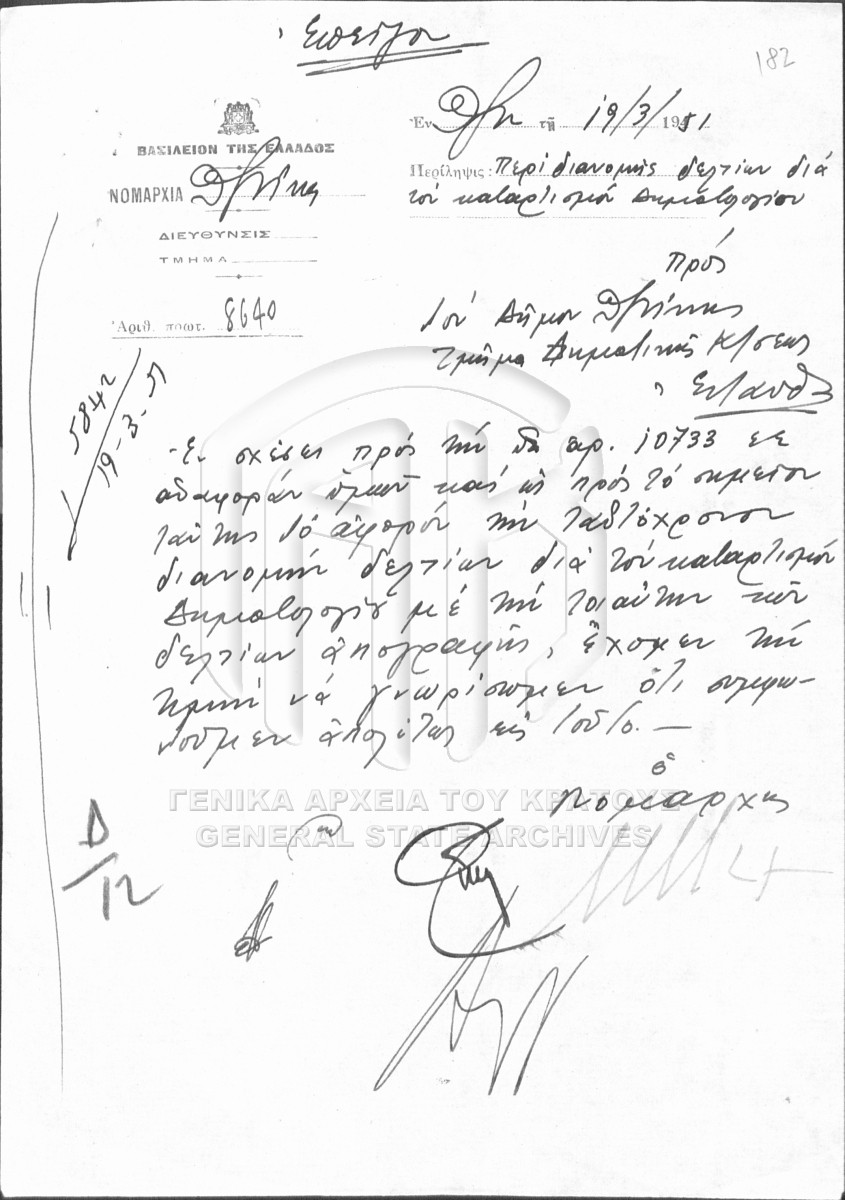 Επείγον
182
Ἐν Θ/κη τῇ 19/3/1951
ΒΑΣΙΛΕΙΟΝ ΤΗΣ ΕΛΛΑΔΟΣ
ΝΟΜΑΡΧΙΑ Θ/νίκης
ΔΙΕΥΘΥΝΣΙΣ
ΤΜΗΜΑ
Ἀριθ. πρωτ. 8640
Περίληψις: Περί διανομῆς δελτίων διά
τόν καταρτισμόν Δημοτολογίου
Πρός
Τόν Δῆμον Θ/νίκης
Τμῆμα Δημοτικῆς Κ/σεως
Ἐνταῦθα
5842
19-3-51
Ἐν σχέσει πρός τήν ὑπ ἀρ. 10733 ἐ.ἔ.
ἀναφοράν ὑμῶν καί ὡς πρός τό σημεῖον
ταύτης τό ἀφορόν τήν ταὐτόχρονον
διανομήν δελτίων διά τόν καταρτισμόν
Δημοτολογίου μέ τήν τοιαύτην τῶν
δελτίων ἀπογραφῆς, ἔχομεν τήν
τιμήν νά γνωρίσωμεν ὅτι συμφω-
νοῦμεν ἀπολύτως εἰς τοῦτο.—
ὁ
Νομάρχης
ΓΕΝΙΚΑ ΑΡΧΕΙΑ ΤΟΥ ΚΡΑΤΟΥΣ
GENERAL STATE ARCHIVES